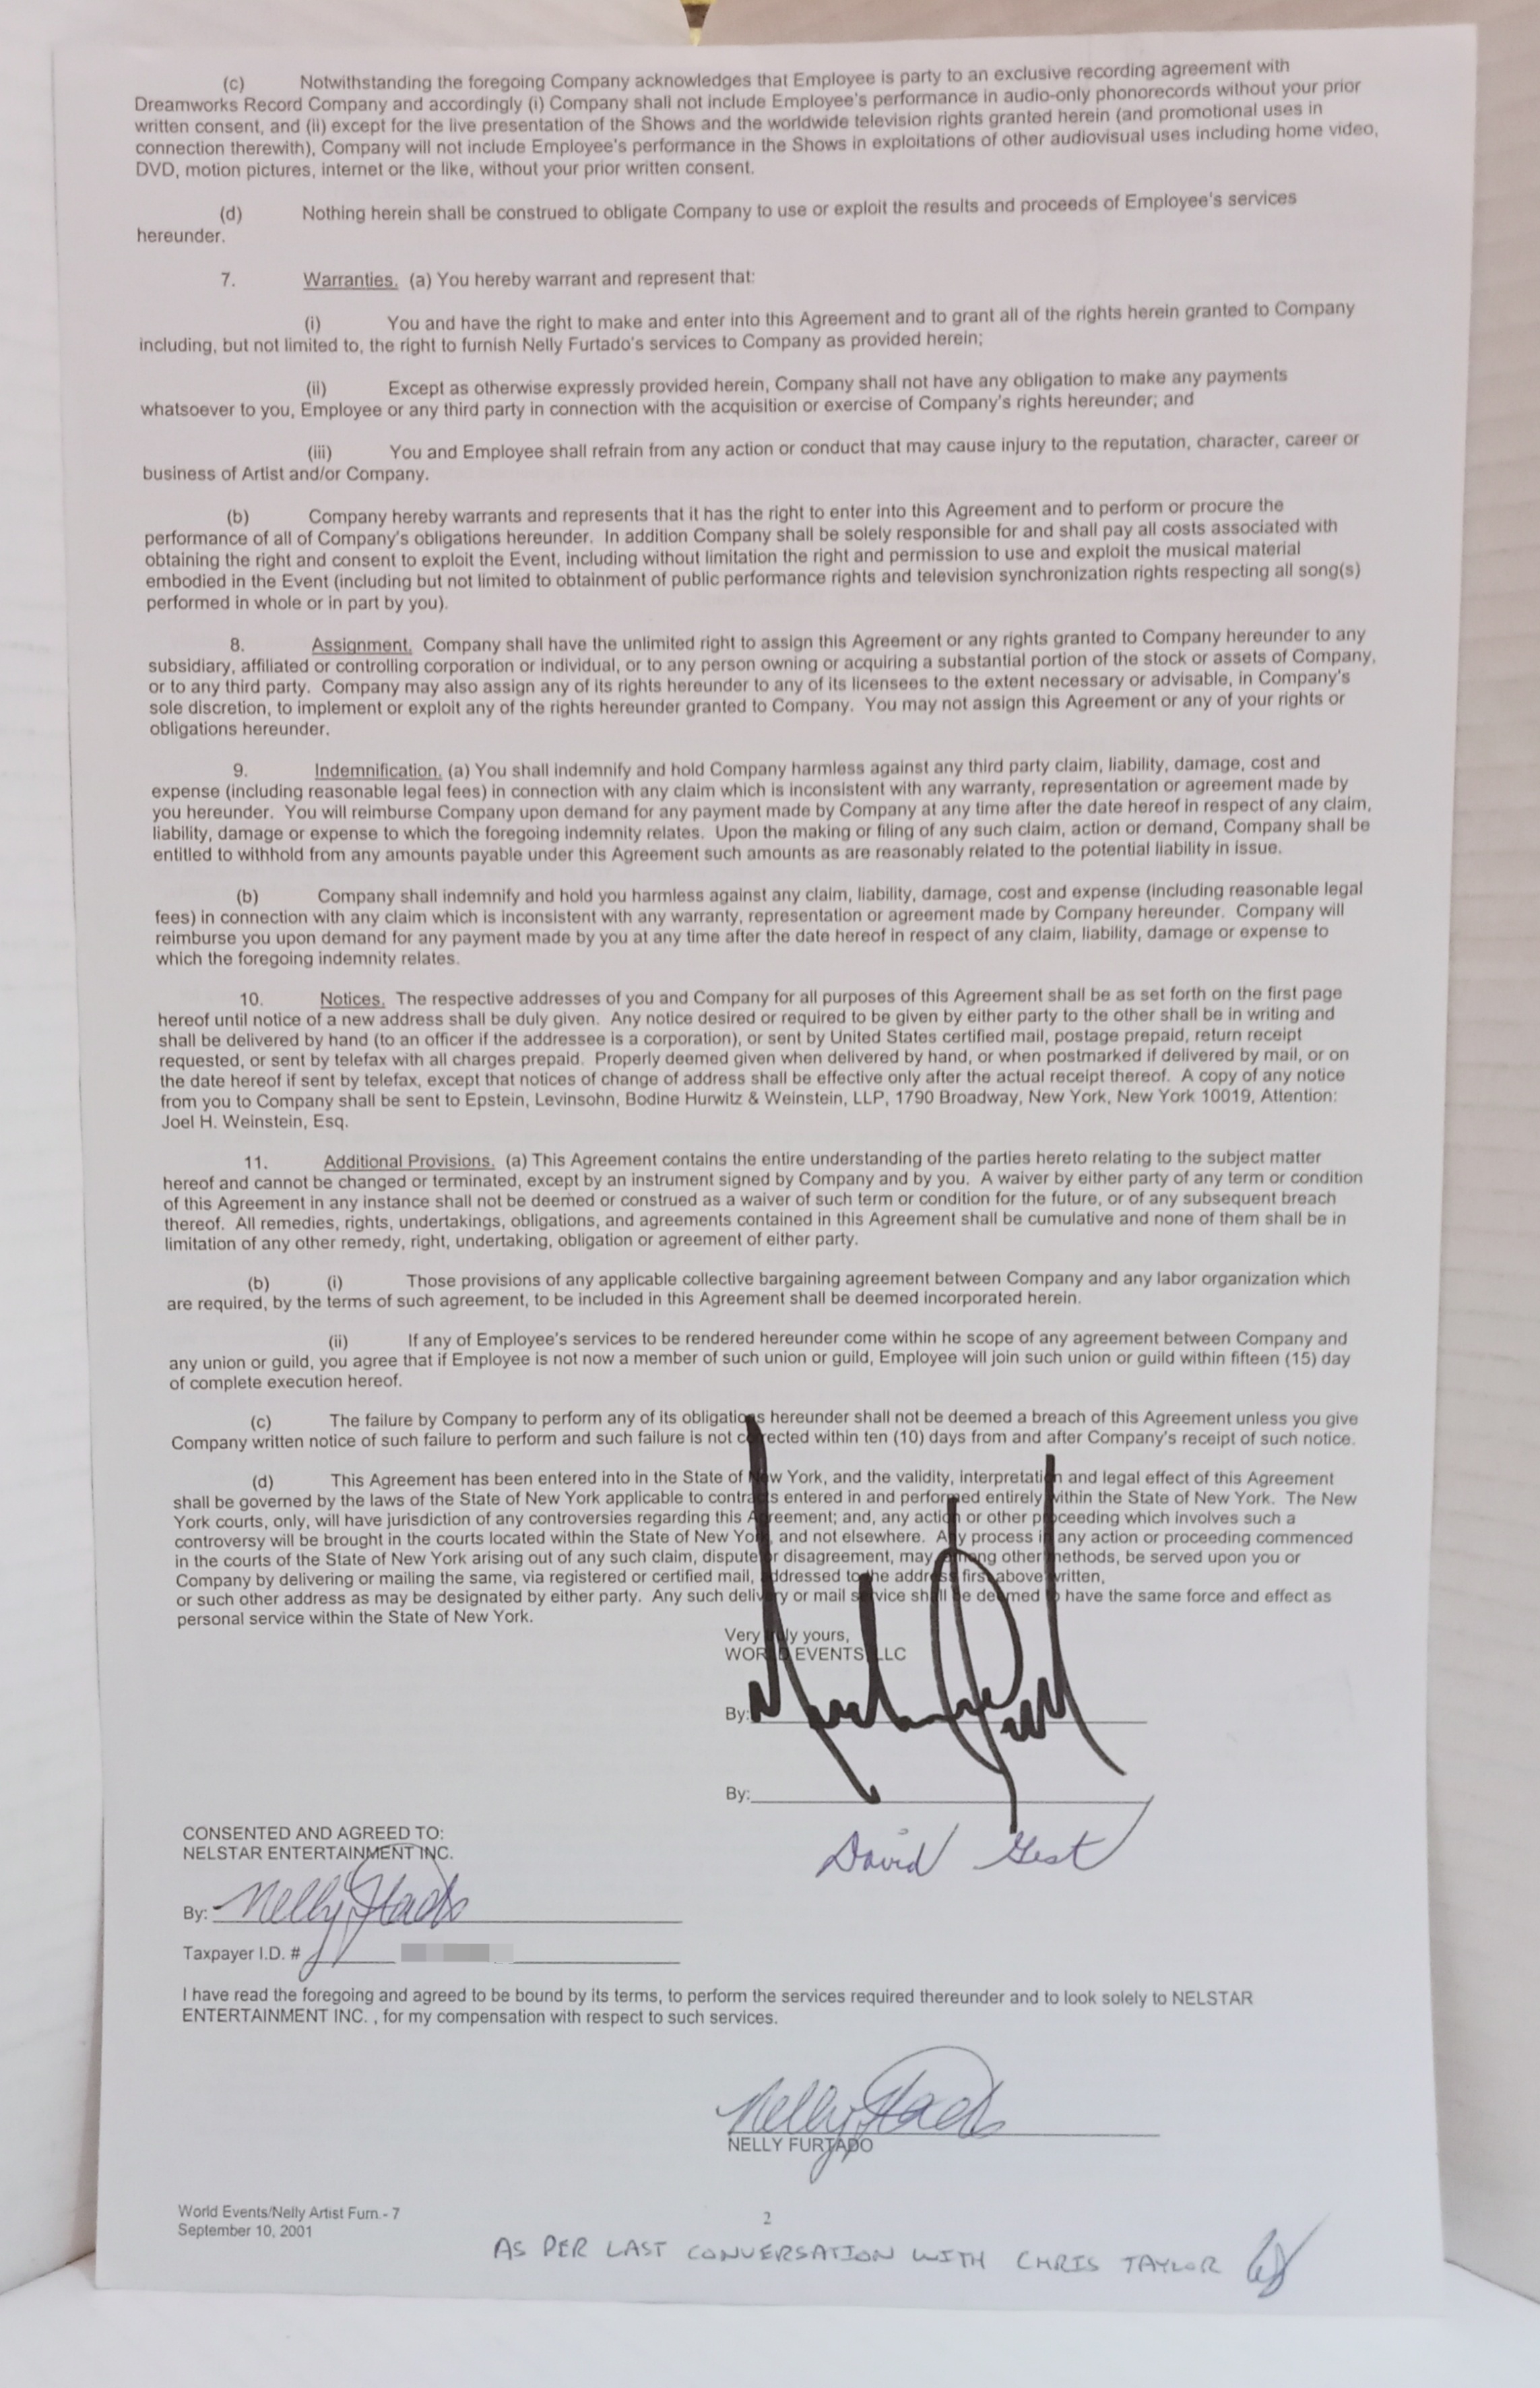 (c) Notwithstanding the foregoing Company acknowledges that Employee is party to an exclusive recording agreement with
Dreamworks Record Company and accordingly (i) Company shall not include Employee's performance in audio-only phonorecords without your prior
written consent, and (ii) except for the live presentation of the Shows and the worldwide television rights granted herein (and promotional uses in
connection therewith), Company will not include Employee's performance in the Shows in exploitations of other audiovisual uses including home video,
DVD, motion pictures, internet or the like, without your prior written consent.
(d) Nothing herein shall be construed to obligate Company to use or exploit the results and proceeds of Employee's services
hereunder.
7. Warranties. (a) You hereby warrant and represent that:
(i) You and have the right to make and enter into this Agreement and to grant all of the rights herein granted to Company
including, but not limited to, the right to furnish Nelly Furtado's services to Company as provided herein;
(ii) Except as otherwise expressly provided herein, Company shall not have any obligation to make any payments
whatsoever to you, Employee or any third party in connection with the acquisition or exercise of Company's rights hereunder; and
(iii) You and Employee shall refrain from any action or conduct that may cause injury to the reputation, character, career or
business of Artist and/or Company.
(b) Company hereby warrants and represents that it has the right to enter into this Agreement and to perform or procure the
performance of all of Company's obligations hereunder. In addition Company shall be solely responsible for and shall pay all costs associated with
obtaining the right and consent to exploit the Event, including without limitation the right and permission to use and exploit the musical material
embodied in the Event (including but not limited to obtainment of public performance rights and television synchronization rights respecting all song(s)
performed in whole or in part by you).
8. Assignment. Company shall have the unlimited right to assign this Agreement or any rights granted to Company hereunder to any
subsidiary, affiliated or controlling corporation or individual, or to any person owning or acquiring a substantial portion of the stock or assets of Company,
or to any third party. Company may also assign any of its rights hereunder to any of its licensees to the extent necessary or advisable, in Company's
sole discretion, to implement or exploit any of the rights hereunder granted to Company. You may not assign this Agreement or any of your rights or
obligations hereunder.
9. Indemnification. (a) You shall indemnify and hold Company harmless against any third party claim, liability, damage, cost and
expense (including reasonable legal fees) in connection with any claim which is inconsistent with any warranty, representation or agreement made by
you hereunder. You will reimburse Company upon demand for any payment made by Company at any time after the date hereof in respect of any claim,
liability, damage or expense to which the foregoing indemnity relates. Upon the making or filing of any such claim, action or demand, Company shall be
entitled to withhold from any amounts payable under this Agreement such amounts as are reasonably related to the potential liability in issue.
(b) Company shall indemnify and hold you harmless against any claim, liability, damage, cost and expense (including reasonable legal
fees) in connection with any claim which is inconsistent with any warranty, representation or agreement made by Company hereunder. Company will
reimburse you upon demand for any payment made by you at any time after the date hereof in respect of any claim, liability, damage or expense to
which the foregoing indemnity relates.
10. Notices. The respective addresses of you and Company for all purposes of this Agreement shall be as set forth on the first page
hereof until notice of a new address shall be duly given. Any notice desired or required to be given by either party to the other shall be in writing and
shall be delivered by hand (to an officer if the addressee is a corporation), or sent by United States certified mail, postage prepaid, return receipt
requested, or sent by telefax with all charges prepaid. Properly deemed given when delivered by hand, or when postmarked if delivered by mail, or on
the date hereof if sent by telefax, except that notices of change of address shall be effective only after the actual receipt thereof. A copy of any notice
from you to Company shall be sent to Epstein, Levinsohn, Bodine Hurwitz & Weinstein, LLP, 1790 Broadway, New York, New York 10019, Attention:
Joel H. Weinstein, Esq.
11. Additional Provisions. (a) This Agreement contains the entire understanding of the parties hereto relating to the subject matter
hereof and cannot be changed or terminated, except by an instrument signed by Company and by you. A waiver by either party of any term or condition
of this Agreement in any instance shall not be deemed or construed as a waiver of such term or condition for the future, or of any subsequent breach
thereof. All remedies, rights, undertakings, obligations, and agreements contained in this Agreement shall be cumulative and none of them shall be in
limitation of any other remedy, right, undertaking, obligation or agreement of either party.
(b) (i) Those provisions of any applicable collective bargaining agreement between Company and any labor organization which
are required, by the terms of such agreement, to be included in this Agreement shall be deemed incorporated herein.
(ii) If any of Employee's services to be rendered hereunder come within he scope of any agreement between Company and
any union or guild, you agree that if Employee is not now a member of such union or guild, Employee will join such union or guild within fifteen (15) day
of complete execution hereof.
(c) The failure by Company to perform any of its obligations hereunder shall not be deemed a breach of this Agreement unless you give
Company written notice of such failure to perform and such failure is not corrected within ten (10) days from and after Company's receipt of such notice.
(d) This Agreement has been entered into in the State of New York, and the validity, interpretation and legal effect of this Agreement
shall be governed by the laws of the State of New York applicable to contracts entered in and performed entirely within the State of New York. The New
York courts, only, will have jurisdiction of any controversies regarding this Agreement; and, any action or other proceeding which involves such a
controversy will be brought in the courts located within the State of New York, and not elsewhere. Any process in any action or proceeding commenced
in the courts of the State of New York arising out of any such claim, dispute or disagreement, may, among other methods, be served upon you or
Company by delivering or mailing the same, via registered or certified mail, addressed to the address first above written,
or such other address as may be designated by either party. Any such delivery or mail service shall be deemed to have the same force and effect as
personal service within the State of New York.
Very truly yours,
WORLD EVENTS, LLC
By:
By:
David Gest
CONSENTED AND AGREED TO:
NELSTAR ENTERTAINMENT INC.
By: Nelly
Taxpayer I.D. #
I have read the foregoing and agreed to be bound by its terms, to perform the services required thereunder and to look solely to NELSTAR
ENTERTAINMENT INC. , for my compensation with respect to such services.
Nelly
NELLY FURTADO
World Events/Nelly Artist Furn.- 7
September 10, 2001
2
AS PER LAST CONVERSATION WITH CHRIS TAYLOR